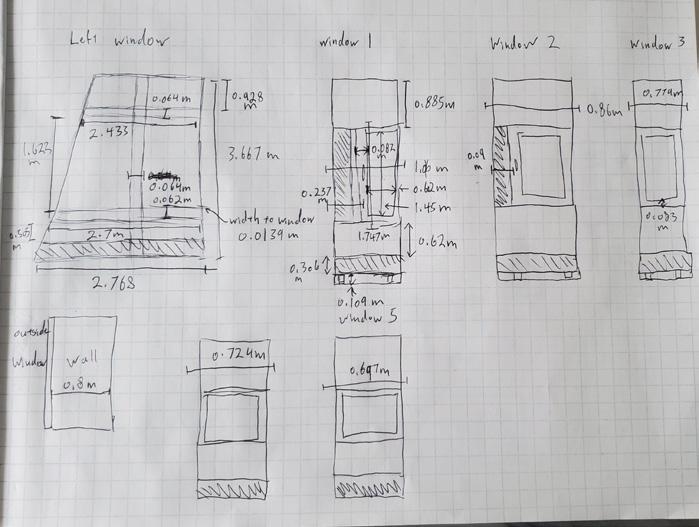 Left window
window 1
Window 2
Window 3
0.064m
0.928
m
2.433
1.623
m
3.667 m
0.064m
0.062m
width to window
0.0139 m
2.7m
m
2.768
0.885m
0.082
m
0.237
m
0.62m
1.45m
1.747m
0.62m
0.306
m
0.109 m
0.86m
0.09
m
0.774m
0.083
m
outside
window
wall
0.8m
0.724m
window 5
0.697m